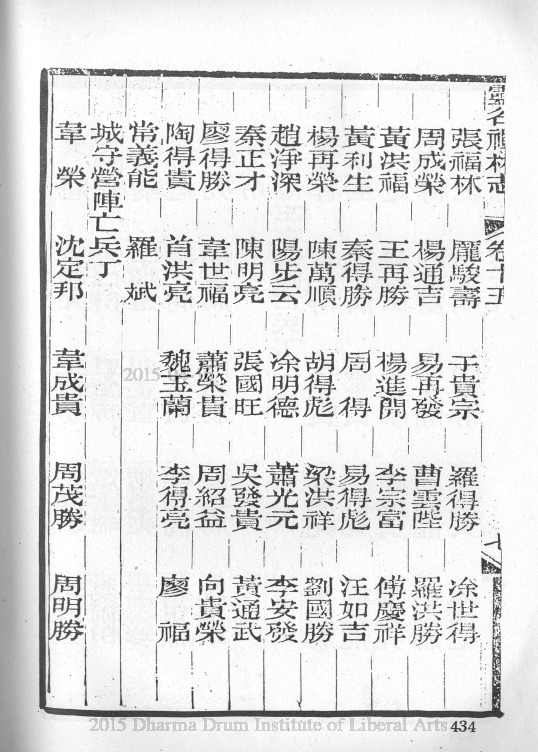 靈谷禪林志 卷十五 七
張福林 龎駿壽 于貴宗 羅得勝 凃世得
周成榮 楊通吉 易再發 曹雲陛 羅洪勝
黃洪福 王再勝 楊進開 李宗富 傅慶祥
黃利生 秦得勝 周得 易得彪 汪如吉
楊再榮 陳萬順 胡得彪 梁洪祥 劉國勝
趙淨深 陽步云 凃明德 蕭光元 李安發
秦正才 陳明亮 張國旺 吳發貴 黃通武
廖得勝 韋世福 蕭榮貴 周紹益 向貴榮
陶得貴 首洪亮 魏玉蘭 李得亮 廖福
常義能 羅斌
城守營陣亡兵丁
韋榮 沈定邦 韋成貴 周茂勝 周明勝
2015
2015 Dharma Drum Institute of Liberal Arts
434